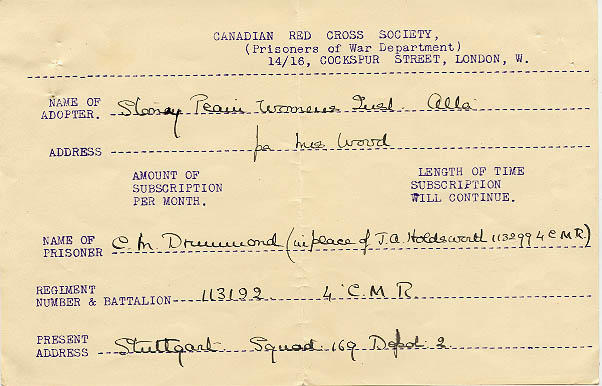 CANADIAN RED CROSS SOCIETY,
(Prisoners of War Department)
14/16, COCKSPUR STREET, LONDON, W.
NAME OF
ADOPTER. Stoney Plain Womens Inst. Alta
ADDRESS pa Mrs Wood
AMOUNT OF
SUBSCRIPTION
PER MONTH.
LENGTH OF TIME
SUBSCRIPTION
WILL CONTINUE.
NAME OF
PRISONER C. M. Drummond (in place of J. A. Holdsworth 113299 4 C.M.R.)
REGIMENT
NUMBER & BATTALION 113192 4 C M R
PRESENT
ADDRESS Stuttgart Squad 169 2